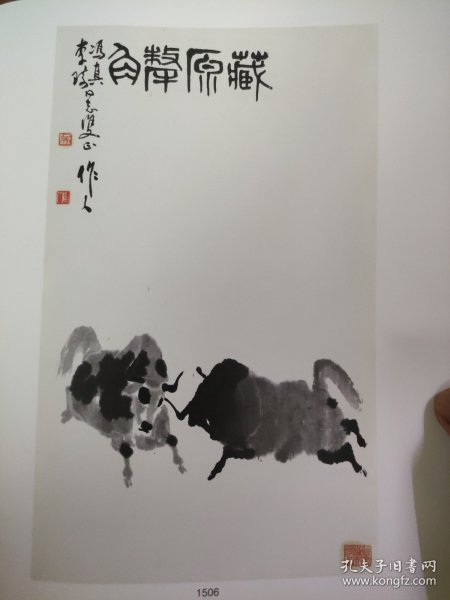 藏原犛角
冯真
李琦同志双正
作人
1506
孔夫子旧书网
www.kongfz.com